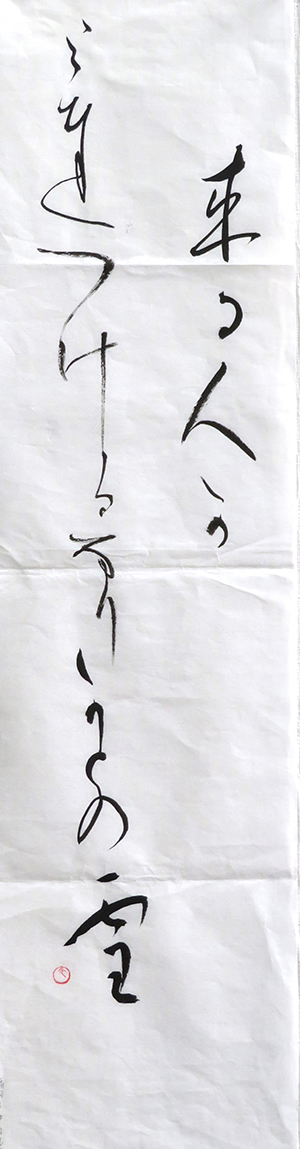 来る人か
みちつけるなりかとの雪